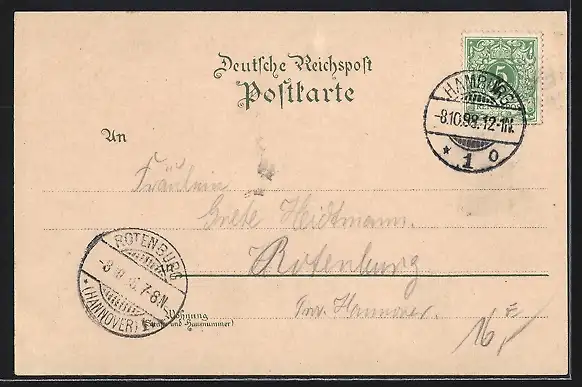 Deutsche Reichspost
Postkarte
HAMBURG
-8.10.98.12-1N.
* 1 o
An
Fräulein
Grete Heidtmann.
Rotenburg
Prov. Hannover.
ROTENBURG
7-8N.
*(HANNOVER)*
Wohnung
(Straße und Hausnummer)
16,